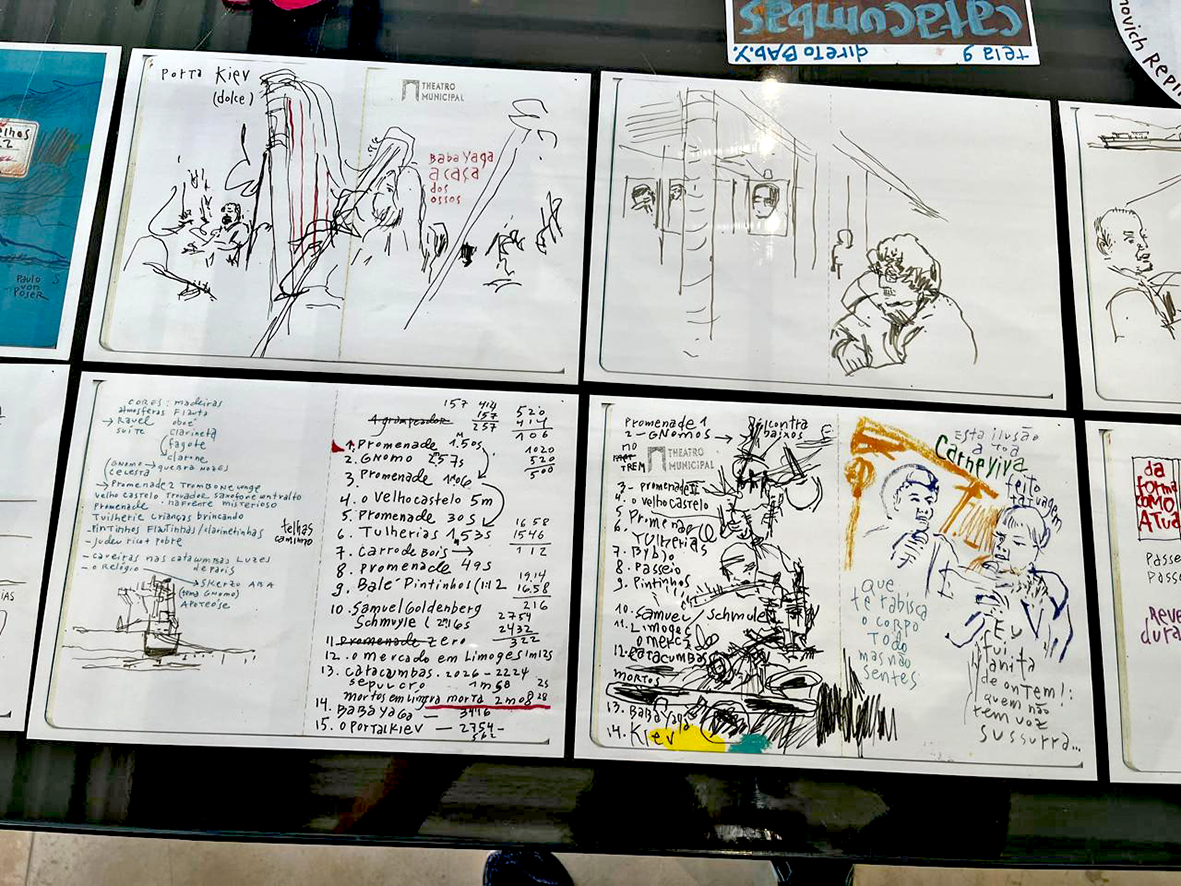 catacumbas
tela 9 direto BAb.Y.
novich Repin
elhos
2
Paulo
von
Poser
Porta Kiev
(dolce)
THEATRO
MUNICIPAL
Baba Yaga
a caça
dos
ossos
CORES: madeiras
atmosferas Flauta
→ Ravel oboé
suíte clarineta
fagote
clarine
(GNOMO → quebra nozes
celesta
→ Promenade 2 Trombone longe
velho castelo Trovador saxofone contralto
Promenade misterioso
Tuilherie Crianças brincando
- Pintinhos Flautinhas/clarinetinhas
- Judeu rico e pobre
telhas
caminho
- caveiras nas catacumbas Luzes
de Paris
- o Relógio → Skerzo ABA
(tema GNOMO)
Apoteose
157 414 520
157 414
257 106
1020
520
500
1. Promenade 1.50s
2. Gnomo 2.57s
3. Promenade 1.06
4. o Velho castelo 5m
5. Promenade 30s
6. Tulherias 1.53s
7. Carro de Bois →
8. promenade 49s
9. Balé Pintinhos (1:12
10. Samuel Goldenberg
Schmuyle (2m16s
11. Promenade Zero
12. o mercado em Limoges 1m12s
13. catacumbas. 2026-2224
sepulcro 1m58 25
mortos em língua morta 2m08 28
14. BABA YAGA — 3446
15. o Portal Kiev — 2754-
1658
1546
112
1914
1658
216
2754
2432
322
Promenade 1
2 - GNOMOS → 8 contra
baixos
no
TREM
THEATRO
MUNICIPAL
3 - promenade II
4. o velho castelo
5. Promenad
6. TULHERIAS
7. Bydlo
8. Passeio
9. Pintinhos
10. Samuel / Schmule
11. Limoges
o merca
12. catacumbas
mortos
13. Baba Yaga
14. Kiev
Esta ilusão
à toa
Carneviva
feito
tatuagem
que
te rabisca
o corpo
TODO
mas não
sentes
Eu
fui
Janita
de ontem!:
quem não
tem voz
sussurra...
da
forma
como
ATUA
Passe
Passe
Reve
dura